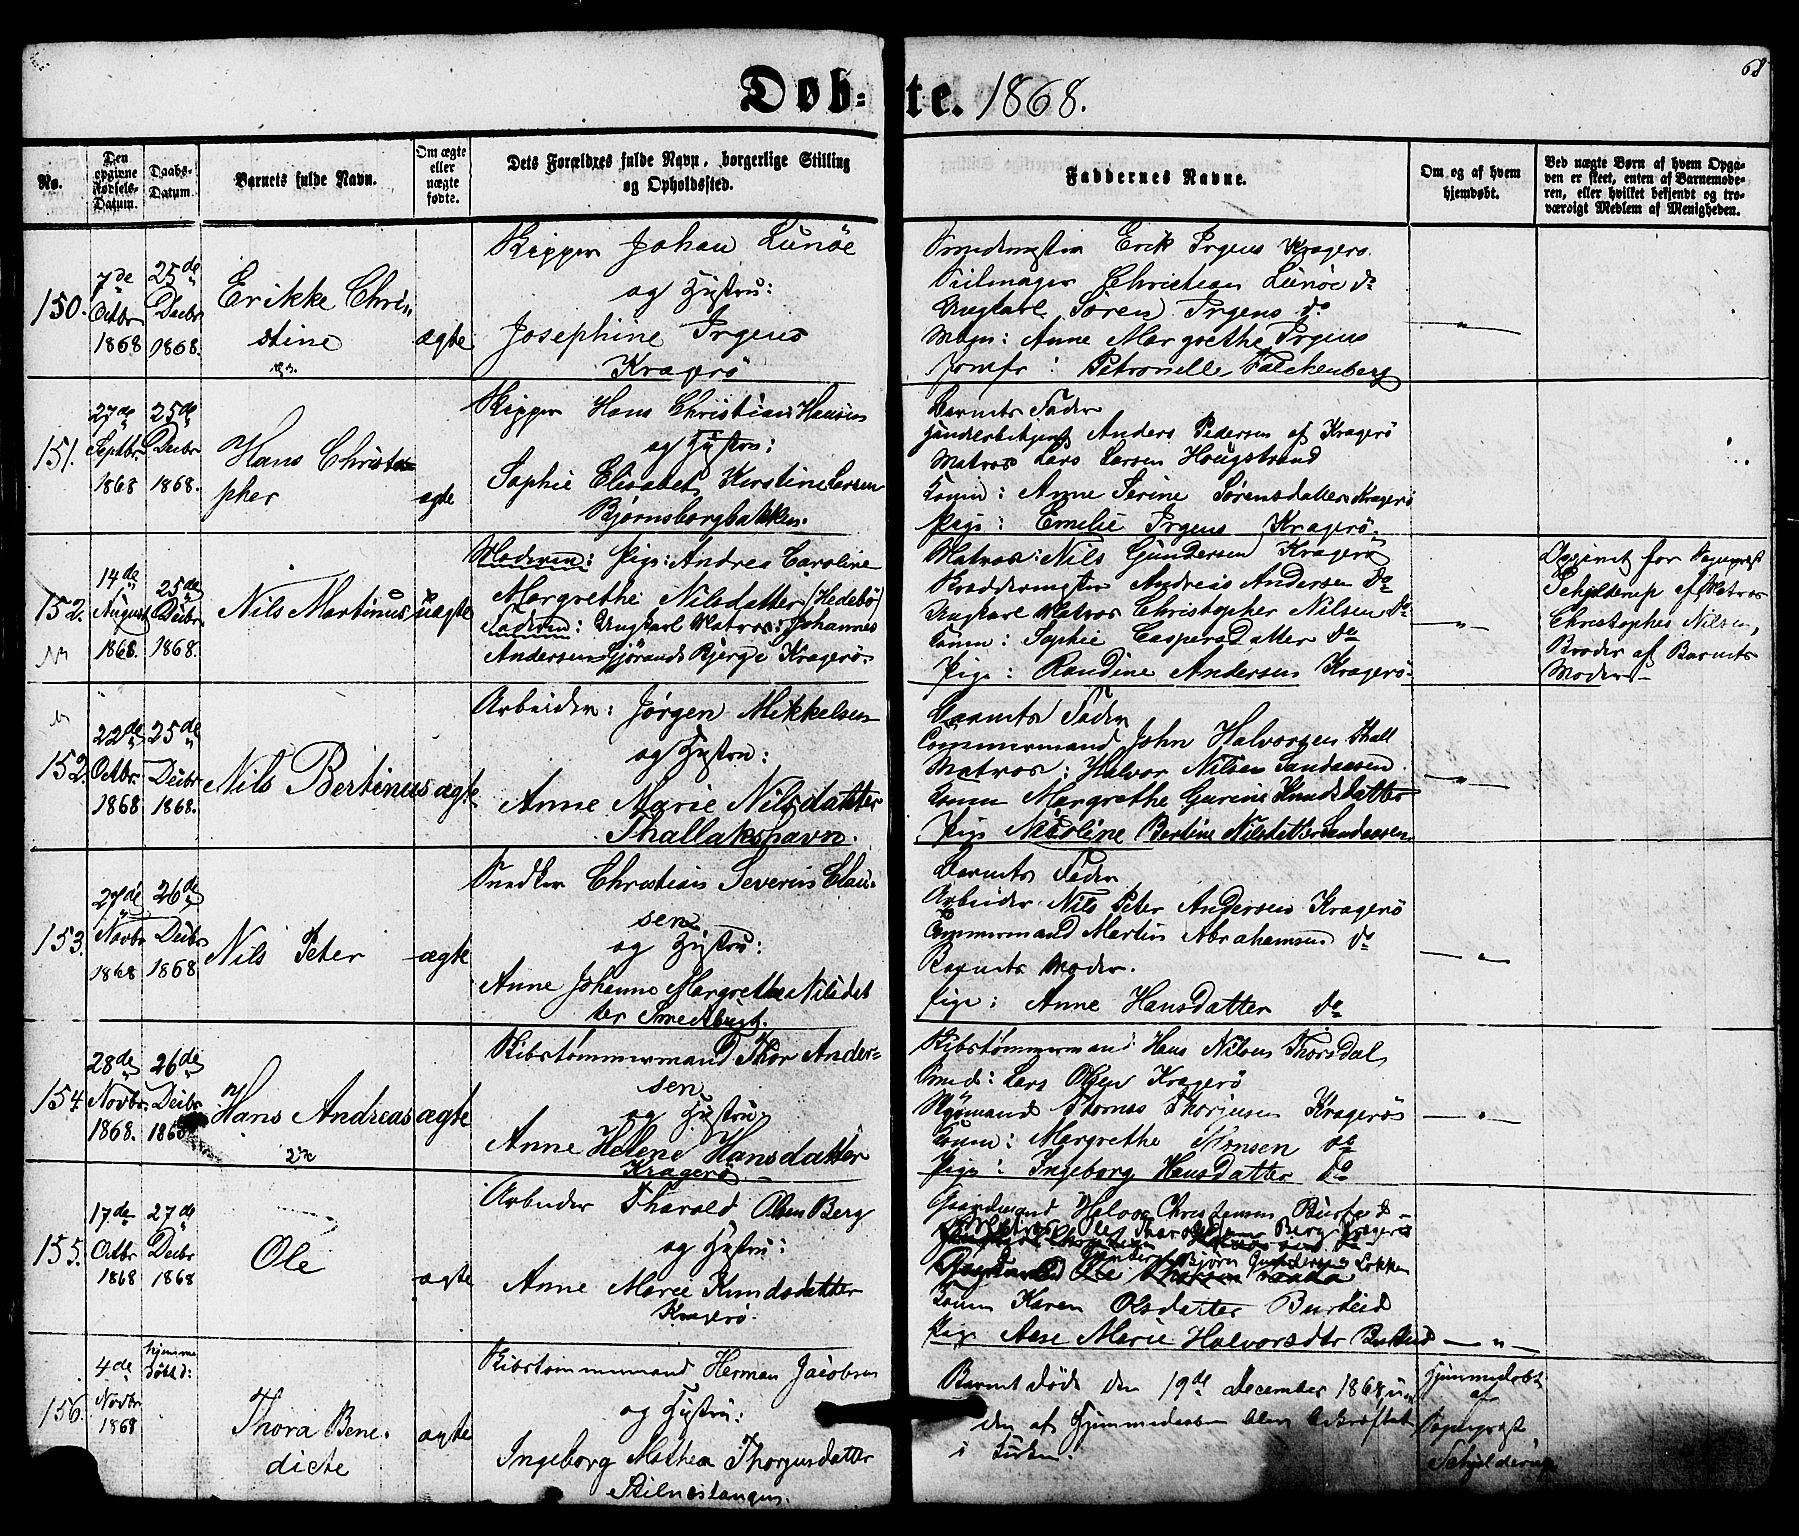 Døb-te. 1868.
68
No.
Den opgivne Fødsels-Datum.
Daabs-Datum.
Barnets fulde Navn.
Om ægte eller uægte fødte.
Dets Forældres fulde Navn, borgerlige Stilling og Opholdssted.
Faddernes Navne.
Om og af hvem hjemdøbt.
Ved uægte Børn af hvem Opga-
ven er skeet, enten af Barnemode-
ren, eller hvilket bekjendt og tro-
værdigt Medlem af Menigheden.
150.
7de Octbr 1868
25de Decbr 1868.
Erikke Chri-
stine
ægte
Skipper Johan Lunøe
og Hustru:
Josephine Irgens
Kragerö
Smedemester Erik Irgens Kragerö.
Seilmager Christian Lunøe do
Ungkarl Søren Irgens do
Mdm: Anne Margrethe Irgens
Jomfr: Petronelle Falckenberg
151.
27de Septbr. 1868
25de Decbr 1868.
Hans Christo-
pher
ægte
Skipper Hans Christian Hansen
og Hustru:
Sophie Elisabet Kirstine Larsen
Bjørnsborgbakken.
Barnets Fader
Anders Pedersen af Kragerö
Matros Lars Larsen Hougstrand
Konen: Anne Serine Sørensdatter Kragerö
Pige: Emelie Irgens Kragerö.
152.
14de August 1868.
25de Decbr 1868.
Nils Martinus
uægte
Moderen: Pige: Andrea Caroline
Margrethe Nilsdatter (Hedebö)
Faderen: Ungkarl Matros: Johannes
Andersen Gjörands Bjerge Kragerö.
Matros: Nils Gundersen Kragerö
Andreas Andersen do
Ungkarl Matros Christopher Nilsen do
Konen: Sophie Caspersdatter do
Pige: Randine Andersen Kragerö.
Opgivet for Sogneprest
Schjelderup af Matros
Christopher Nilsen,
Broder af Barnets
Moder
152.
22de Octbr 1868
25de Decbr 1868.
Nils Bertinus
ægte
Arbeider: Jørgen Mikkelsen
og Hustru:
Anne Marie Nilsdatter
Thallakshavn.
Barnets Fader
Tømmermand John Halvorsen Skall
Matros: Halvor Nilsen Sandaasen
Konen Margrethe Gurine Knudsdatter
Pige Nicoline Bertine Nilsdatter Sandaasen
153.
27de Novbr 1868
26de Decbr 1868
Nils Peter
ægte
Snedker Christian Severin Clau-
sen
og Hustru:
Anne Johanne Margrethe Nilsdat
ter Smedsbugt.
Barnets Fader
Arbeider Nils Peter Andersen Kragerö
Tømmermand Martin Abrahamsen do
Barnets Moder.
Pige: Anne Hansdatter do
154.
28de Novbr. 1868.
26de Decbr 1868
Hans Andreas
ægte
Skibstømmermand Thor Ander-
sen
og Hustru
Anne Helene Hansdatter
Kragerö
Skibstømmermand Hans Nilsen Thorsdal
Smed: Lars Olsen Kragerö
Thomas Thorjusen Kragerö
Konen: Margrethe do
Pige: Ingeborg Hansdatter do
155.
17de Octbr 1868
27de Decbr 1868
Ole
ægte
Arbeider Tharald Olsen Berg
og Hustru:
Anne Marie Knudsdatter
Kragerö.
Gaardmand Halvor Christensen Burteid
Ole Tharaldsen Berg Kragerö
Bjørn Gundersen Løkken
Konen Karen Olsdatter Burteid
Pige Aase Marie Halvorsdtr Burteid
156.
4de Novbr 1868
hjemme
døbt d:
Thora Bene-
dicte
ægte
Skibstømmermand Herman Jacobsen
og Hustru:
Ingeborg Mathea Thorgersdatter
Stilnestangen.
Barnet døde den 19de December 1868
den af Hjemmedaaben blev bekræftet
i Kirken.
Hjemmedøbt
af
Sogneprest
Schjelderup